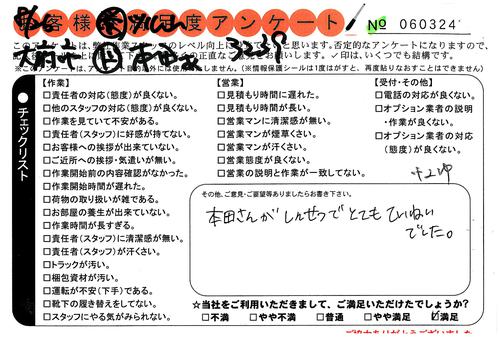 お客様満足度アンケート
No 060324
このアンケートは、弊社作業スタッフのレベル向上に
否定的なアンケートになりますので、
正直なご意見を
✓印は、いくつでも結構です。
(※情報保護シールは1度はがすと、再度貼りなおすことはできません)
●チェックリスト
【作業】
□責任者の対応(態度)が良くない。
□他のスタッフの対応(態度)が良くない。
□作業を見ていて不安がある。
□責任者(スタッフ)に好感が持てない。
□お客様への挨拶が出来ていない。
□ご近所への挨拶・気遣いが無い。
□作業開始前の内容確認がなかった。
□作業開始時間が遅れた。
□荷物の取り扱いが雑である。
□お部屋の養生が出来ていない。
□作業時間が長すぎる。
□責任者(スタッフ)に清潔感が無い。
□責任者(スタッフ)が汗くさい。
□トラックが汚い。
□梱包資材が汚い。
□運転が不安(下手)である。
□靴下の履き替えをしてない。
□スタッフにやる気がみられない。
【営業】
□見積もり時間に遅れた。
□見積もり時間が長い。
□営業マンに清潔感が無い。
□営業マンが煙草くさい。
□営業マンが汗くさい。
□営業態度が良くない。
□営業の説明と作業が一致してない。
【受付・その他】
□電話の対応が良くない。
□オプション業者の説明
・作業が良くない。
□オプション業者の対応
(態度)が良くない。
その他、ご意見・ご要望等ありましたらお書き下さい。
本田さんが しんせつで とても ていねい
でした。
☆当社をご利用いただきまして、ご満足いただけたでしょうか?
□不満 □やや不満 □普通 □やや満足 ☑満足
ご協力ありがとうございました